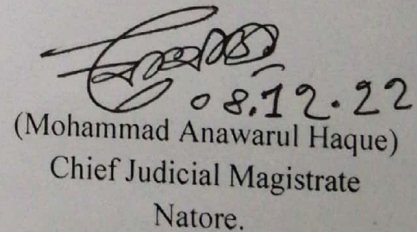 08.12.22
(Mohammad Anawarul Haque)
Chief Judicial Magistrate
Natore.